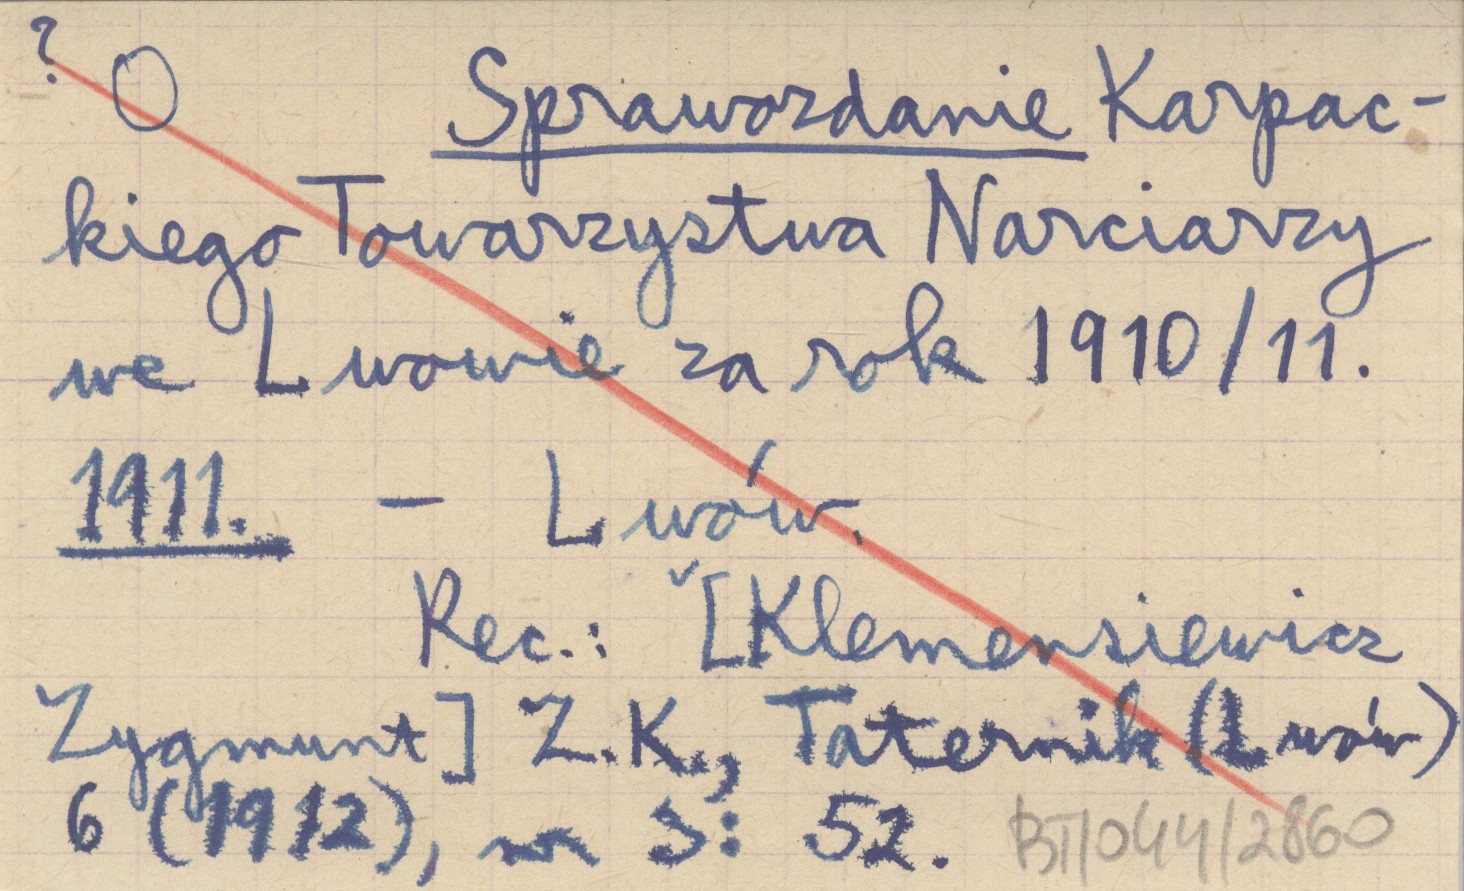 ? O Sprawozdanie Karpac-
kiego Towarzystwa Narciarzy
we Lwowie za rok 1910/11.
1911. – Lwów.
Rec.: [Klemensiewicz
Zygmunt] Z.K., Taternik (Lwów)
6 (1912), nr 3: 52.
BT/044/2860